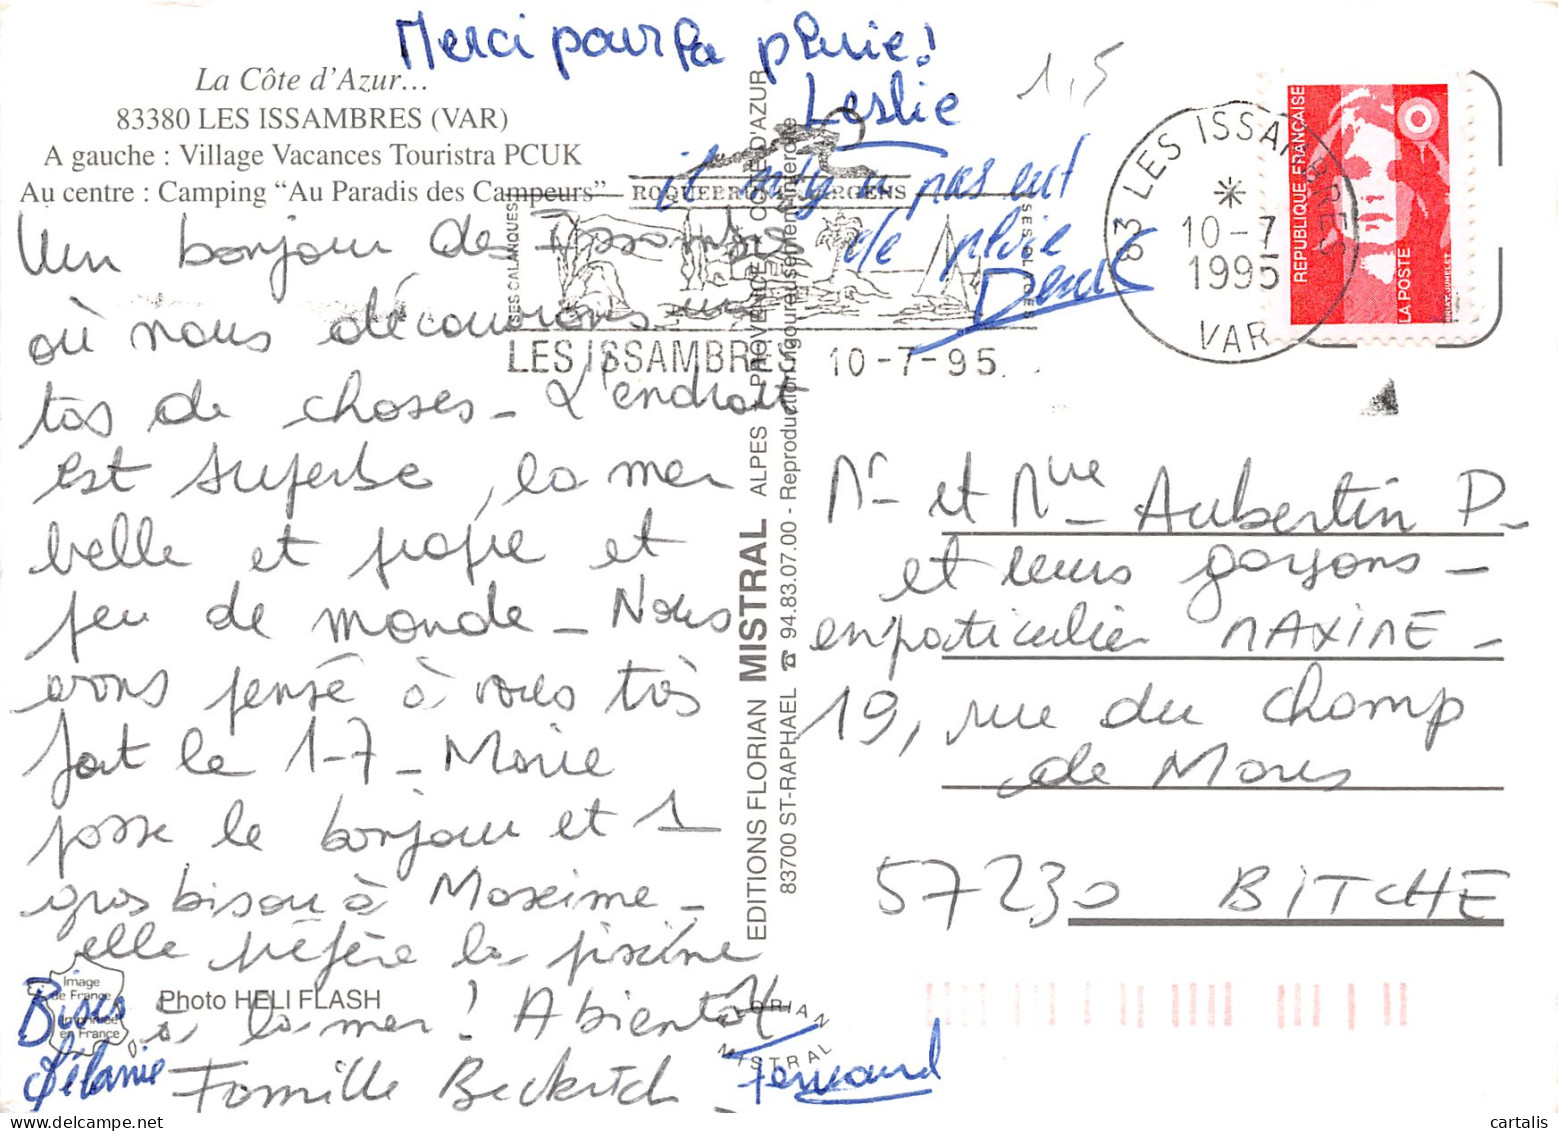 Merci pour la pluie!
Leslie
1,5
La Côte d'Azur...
83380 LES ISSAMBRES (VAR)
A gauche : Village Vacances Touristra PCUK
Au centre : Camping “Au Paradis des Campeurs”
il n'y a pas eut
de pluie
Un bonjour des Issambres
où nous découvrons
tas de choses - L'endroit
est superbe, la mer
belle et propre et
peu de monde - Nous
avons pensé à vous très
fort le 1-7 - Marie
passe le bonjour et 1
gros bisou à Maxime -
elle préfère la piscine
à la mer ! A bientôt
Famille Beckrich
Bises
Mélanie
Fernand
Photo HELI FLASH
Image
de France
Imprimée
en France
ROQUEBRUNE SUR ARGENS
SES CALANQUES
LES ISSAMBRES 10-7-95
83 LES ISSAMBRES
10-7
1995
VAR
REPUBLIQUE FRANÇAISE
LA POSTE
EDITIONS FLORIAN MISTRAL ALPES PROVENCE COTE D'AZUR
83700 ST-RAPHAEL ☎ 94.83.07.00 - Reproduction rigoureusement interdite
FLORIAN
MISTRAL
Mr et Mme Aubertin P-
et leurs garçons -
en particulier MAXIME -
19, rue du champ
de Mars
57230 BITCHE
cartalis